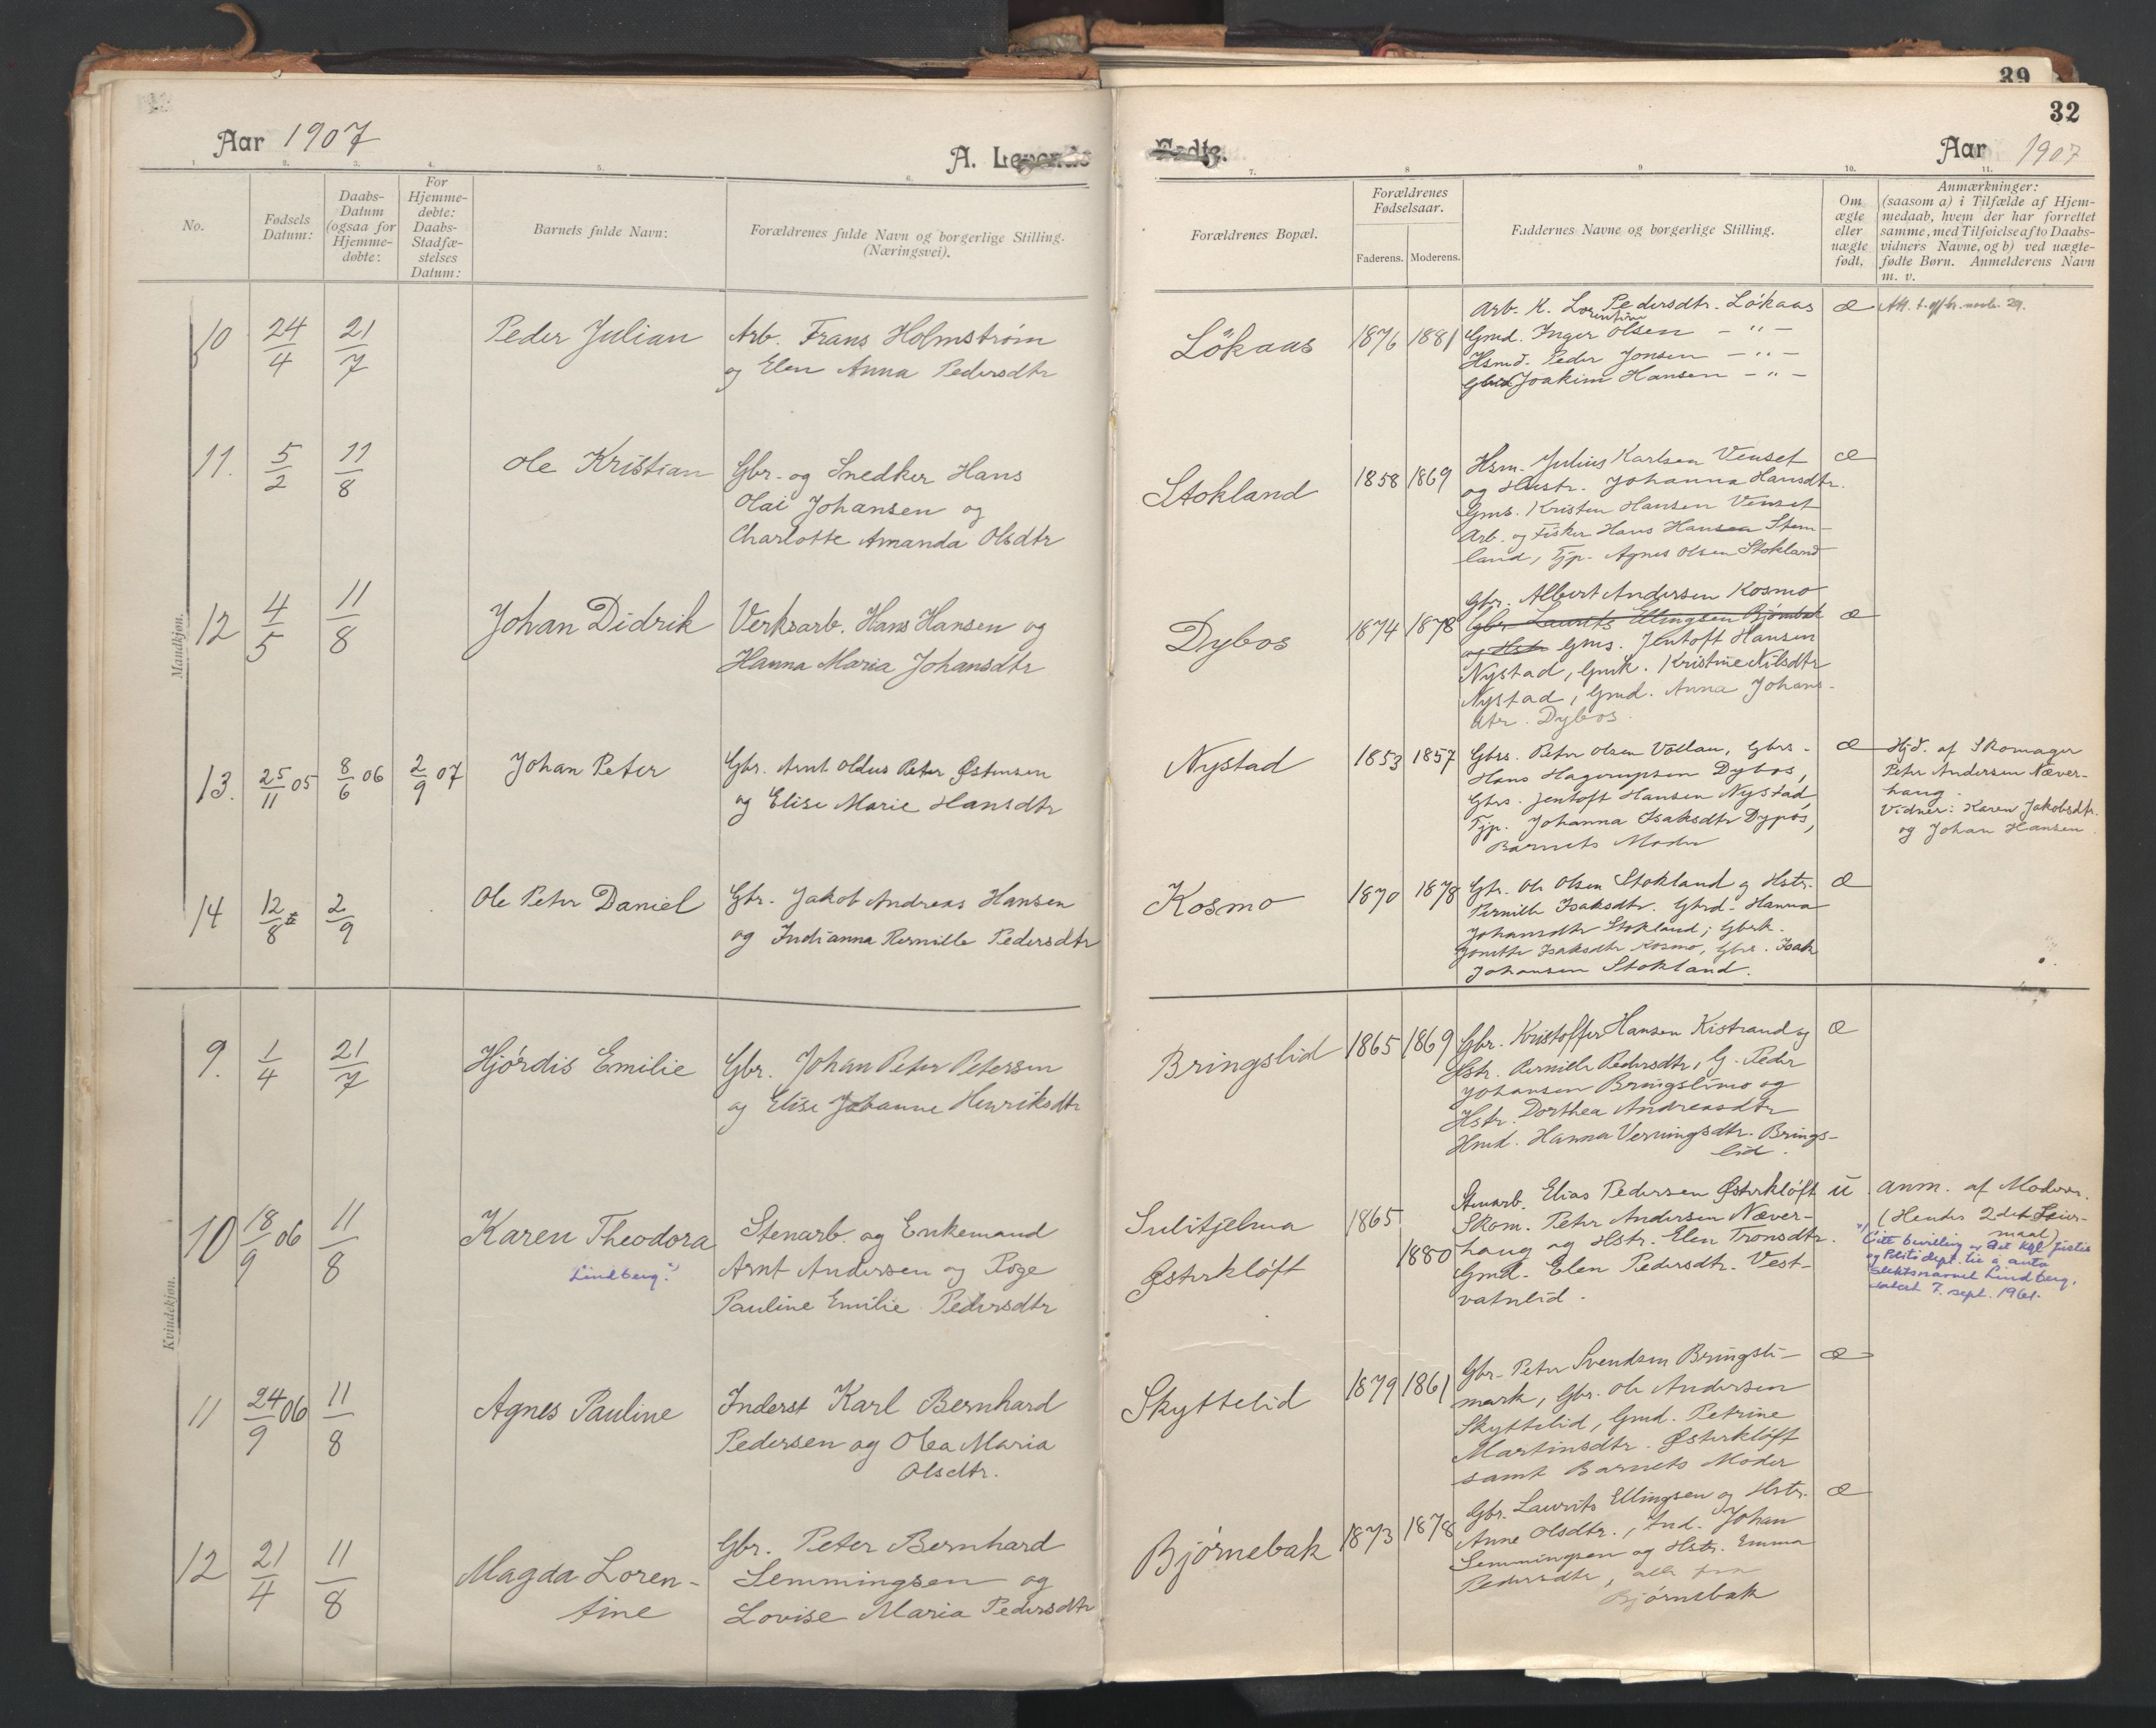 39
32
Aar 1907
A. Levende
Fødte.
Aar 1907
1. 2. 3. 4. 5. 6. 7. 8 9 10. 11.
No.
Fødsels Datum:
Daabs-
Datum
(ogsaa for
Hjemme-
døbte:
For
Hjemme-
døbte:
Daabs-
Stadfæ-
stelses
Datum:
Barnets fulde Navn:
Forældrenes fulde Navn og borgerlige Stilling.
(Næringsvei).
Forældrenes Bopæl.
Forældrenes
Fødselsaar.
Faderens. Moderens.
Faddernes Navne og borgerlige Stilling.
Om
ægte
eller
uægte
født.
Anmærkninger:
(saasom a) i Tilfælde af Hjem-
medaab, hvem der har forrettet
samme, med Tilføielse af to Daabs-
vidners Navne, og b) ved uægte-
fødte Børn. Anmelderens Navn
m. v.
Mandkjøn.
10 24/4 21/7 Peder Julian
Arb. Frans Holmstrøm
og Elen Anna Pedersdtr
Lökaas 1876 1881
Arb. K. Lorentine Pedersdtr. Lökaas
Gmd. Inger Olsen - " -
Hsmd. Peder Jonsen - " -
Gbrd Joakim Hansen - " -
æ
11. 5/2 11/8 Ole Kristian
Gbr. og Snedker Hans
Olai Johansen og
Charlotte Amanda Olsdtr
Stokland 1858 1869
Hsm. Julius Karlsen Venset
og Hustr. Johanna Hansdtr.
Gms. Kristen Hansen Venset
Arb. og Fisker Hans Hansen Stem-
land, Tjp. Agnes Olsen Stokland
æ
12 4/5 11/8 Johan Didrik
Verksarb. Hans Hansen og
Hanna Maria Johansdtr
Dybos 1874 1878
Gbr. Albert Andersen Kosmo
Gbr Laurits Ellingsen Bjørnbak
og Hstr Gms. Jentoft Hansen
Nystad, Gmk. Kristine Nilsdtr
Nystad, Gmd. Anna Johans-
dtr. Dybos.
æ
13. 25/11 05 8/6 06 2/9 07 Johan Peter
Gbr. Arnt Oldus Peter Østensen
og Elise Marie Hansdtr
Nystad 1853 1857
Gbrs. Peter Olsen Vollan, Gbrs.
Hans Hagerupsen Dybos,
Gbrs. Jentoft Hansen Nystad,
Tjp. Johanna Isaksdtr Dypos,
Barnets Moder
æ
Hjd. af Skomager
Peter Andersen Næver-
haug.
Vidner: Karen Jakobsdtr.
og Johan Hansen.
14 12/8 2/9 Ole Peter Daniel
Gbr. Jakob Andreas Hansen
og Indianna Pernille Pedersdtr
Kosmo 1870 1878
Gbr. Ole Olsen Stokland og Hstr.
Pernille Isaksdtr. Gbrd. Hanna
Johansdtr Stokland; Gbrk.
Jonette Isaksdtr Kosmo, Gbrs. Isak
Johansen Stokland.
æ
Kvindekjøn.
9. 1/4 21/7 Hjørdis Emilie
Gbr. Johan Peter Petersen
og Elise Johanne Henriksdtr
Bringslid 1865 1869
Gbr. Kristoffer Hansen Kistrand og
Hstr. Pernille Pedersdtr, G. Peder
Johansen Bringslimo og
Hstr. Dorthea Andreasdtr
Hmd. Hanna Verningsdtr. Brings-
lid.
æ
10 18/9 06 11/8 Karen Theodora
Lindberg. x)
Stenarb. og Enkemand
Arnt Andersen og Pige
Pauline Emilie Pedersdtr
Sulitjelma
Østerkløft
1865
1880
Stenarb. Elias Pedersen Østerkløft
Skom. Peter Andersen Næver-
haug og Hstr. Elen Tronsdtr.
Gmd. Elen Pedersdtr. Vest-
vatnlid.
u
Anm. af Moderen.
(Hendes 2det Leier-
maal)
x) Gitt bevilling av Det kgl. justis
og Politidept. til å anta
slektsnavnet Lindberg,
datert 7. sept. 1961.
11 24/9 06 11/8 Agnes Pauline
Inderst Karl Bernhard
Pedersen og Olea Maria
Olsdtr.
Skyttelid 1879 1861
Gbr. Peter Svendsen Bringsli-
mark, Gbr. Ole Andersen
Skyttelid, Gmd. Petrine
Martinsdtr. Østerkløft
samt Barnets Moder
æ
12 21/4 11/8 Magda Loren-
tine
Gbr. Peter Bernhard
Lemmingsen og
Lovise Maria Pedersdtr
Bjørnebak 1873 1878
Gbr. Laurits Ellingsen og Hstr.
Anne Olsdtr., Ind. Johan
Lemmingsen og Hstr. Emma
Pedersdtr, alle fra
Bjørnebak
æ